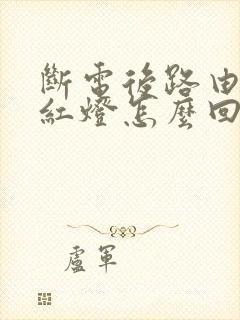 斷電後路由
紅燈怎麼回
盧軍